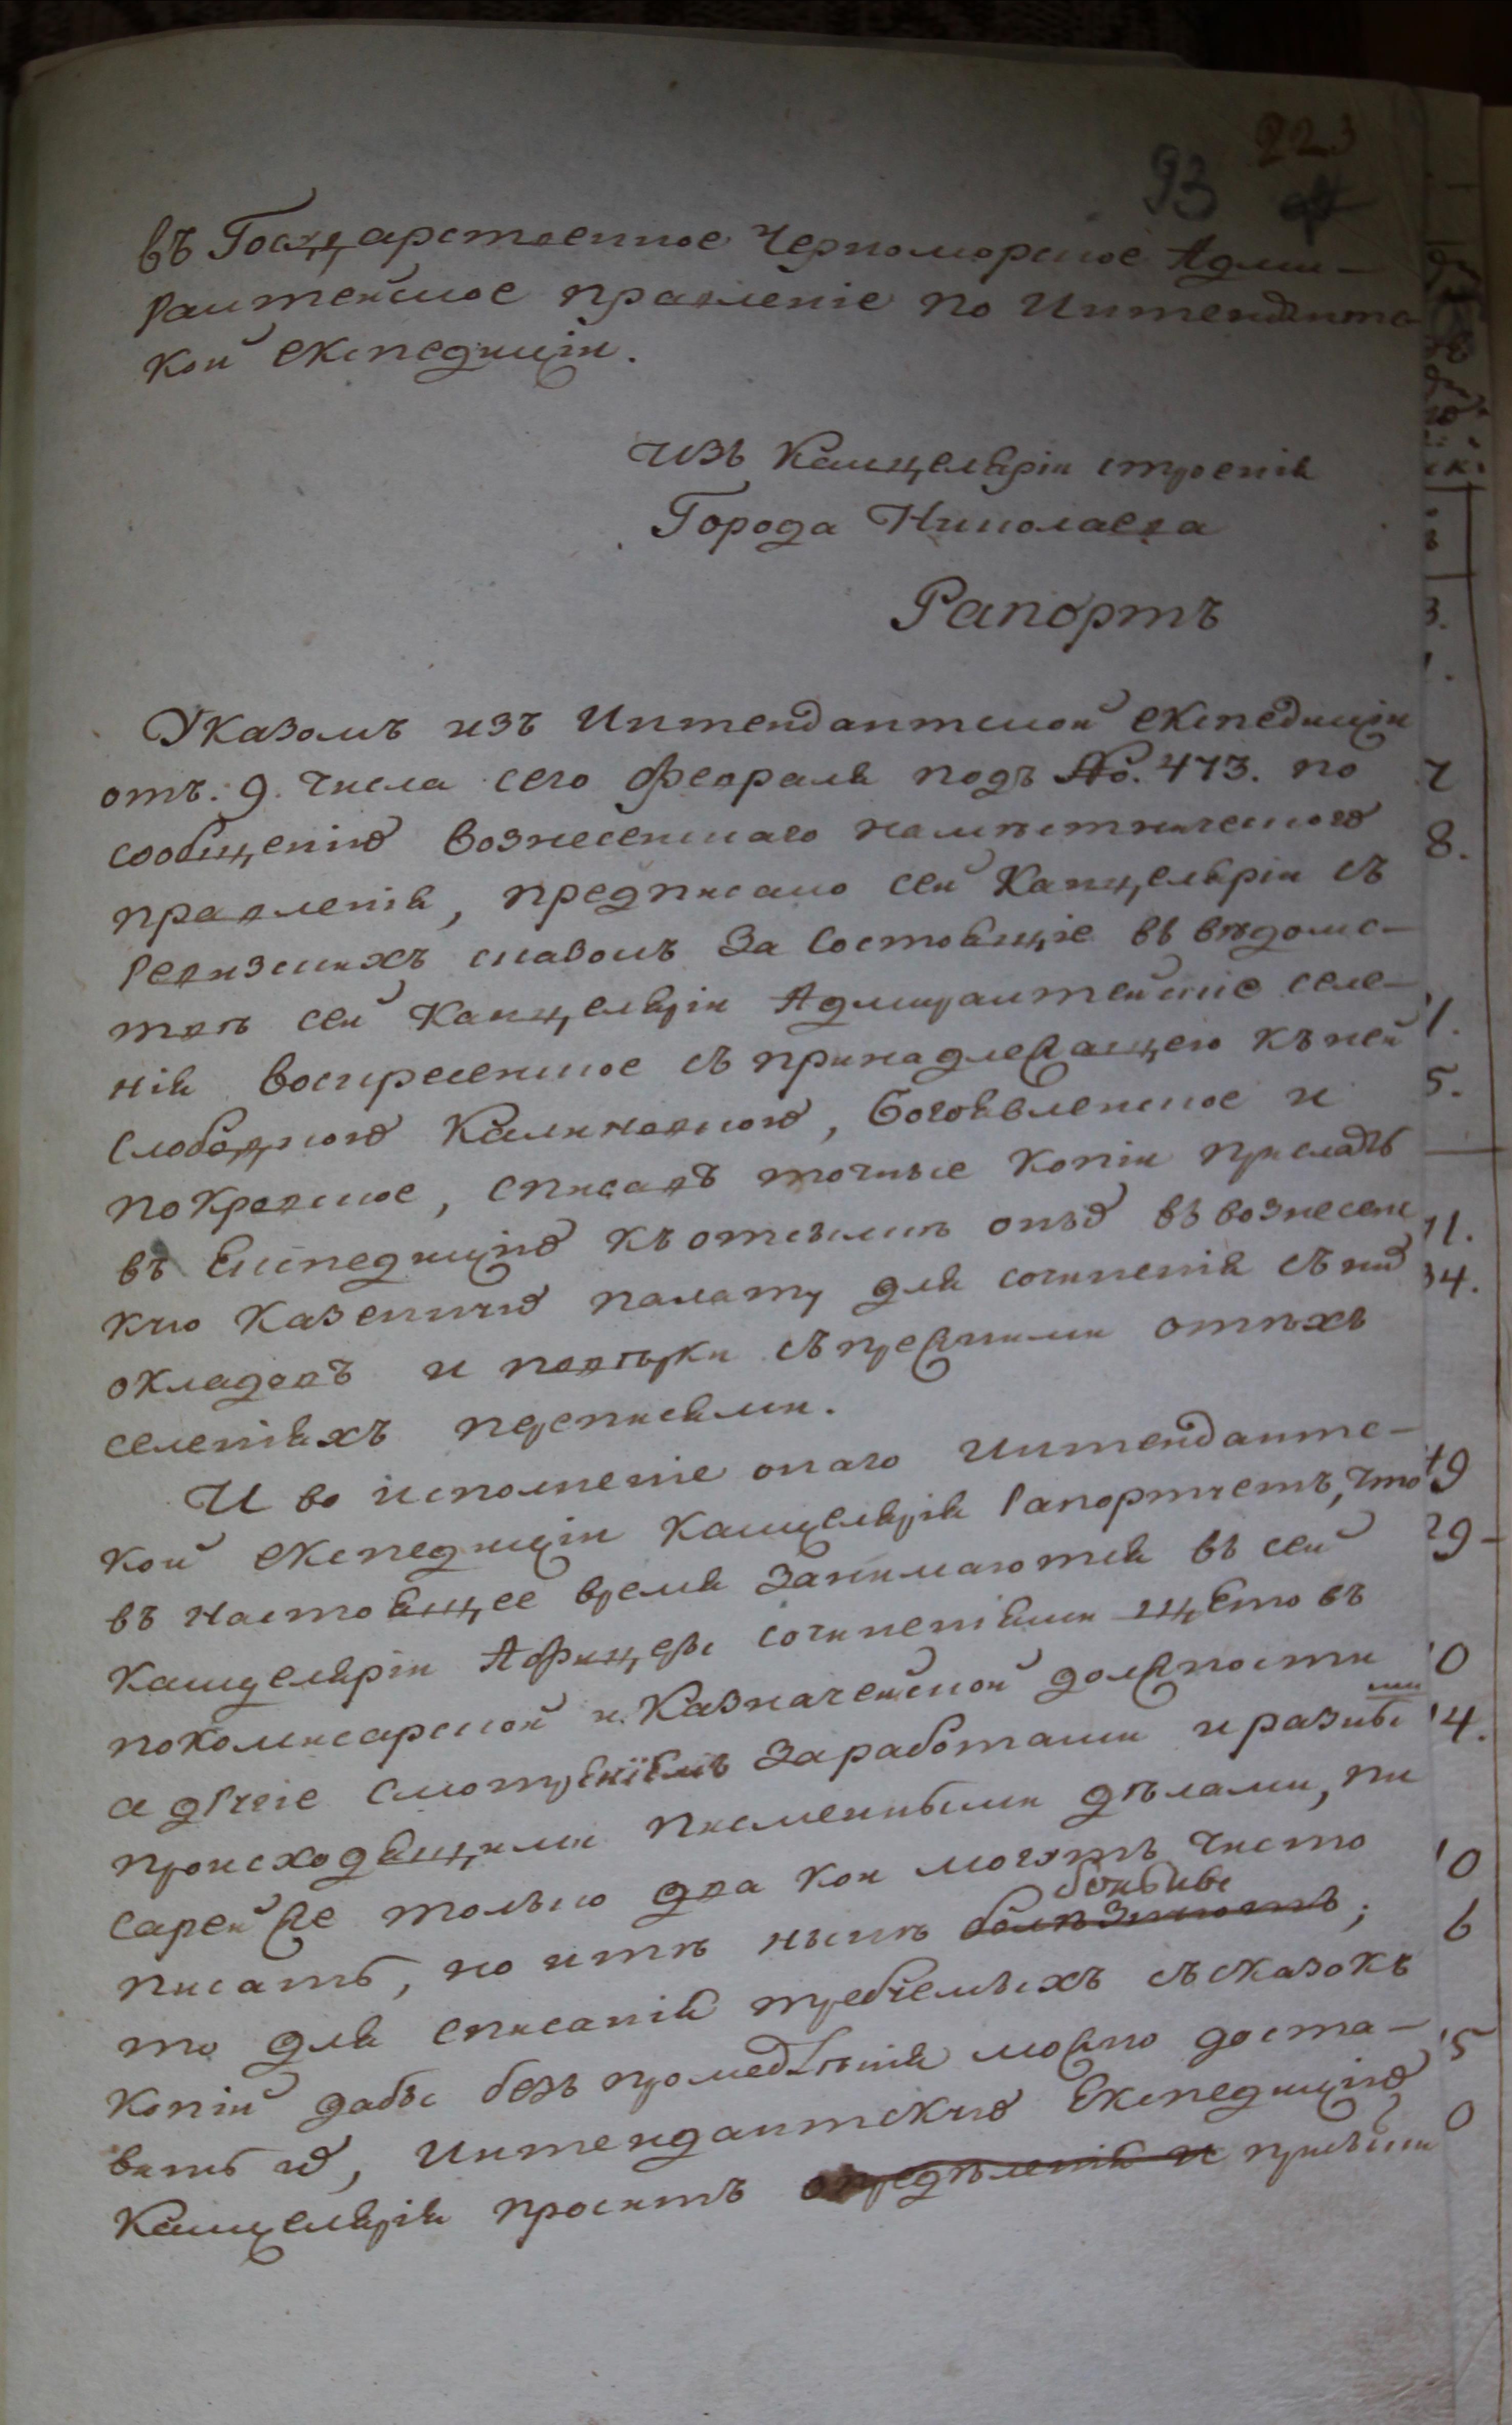 223
93
въ Государственное Черноморское Адми-
ралтейское правленіе по Интендантс-
кой експедиціи.
изъ Канцеляріи строенія
Города Николаева
Рапортъ
Указомъ изъ Интендантской експедиціи
отъ. 9. числа сего февраля подъ №. 473. по
сообщенію вознесенскаго намѣстническаго
правленія, предписано сей Канцеляріи съ
ревизскихъ сказокъ за состоящіе въ вѣдомс-
твѣ сей Канцеляріи Адмиралтейскіе селе-
нія воскресенское съ принадлежащею къ ней
слободкою Калиновкою, богоявленское и
покровское, списавъ точные копіи прислать
въ Експедицію къ отсылкѣ оныхъ въ вознесенс
кую казенную палату для сочиненія съ них
окладовъ и повѣрки съ прежними о тѣхъ
селеніяхъ переписями.
И во исполненіе онаго интендантс-
кой експедиціи канцелярія рапортуетъ, что
въ настоящее время занимаются въ сей
канцеляріи Афицеры сочиненіями щетовъ
по комисарской и казначейской должности
а другіе смотреніемъ за работами и разны
ми
происходящими писменными дѣлами, пи
сарей же только два кои могутъ чисто
больные
писать, но и тѣ нынѣ ;
то для списанія требуемыхъ съ сказокъ
копій дабы безъ промедленія можно доста-
вить ихъ, Интендантскую Експедицію
Канцелярія проситъ опредѣленія и присылки